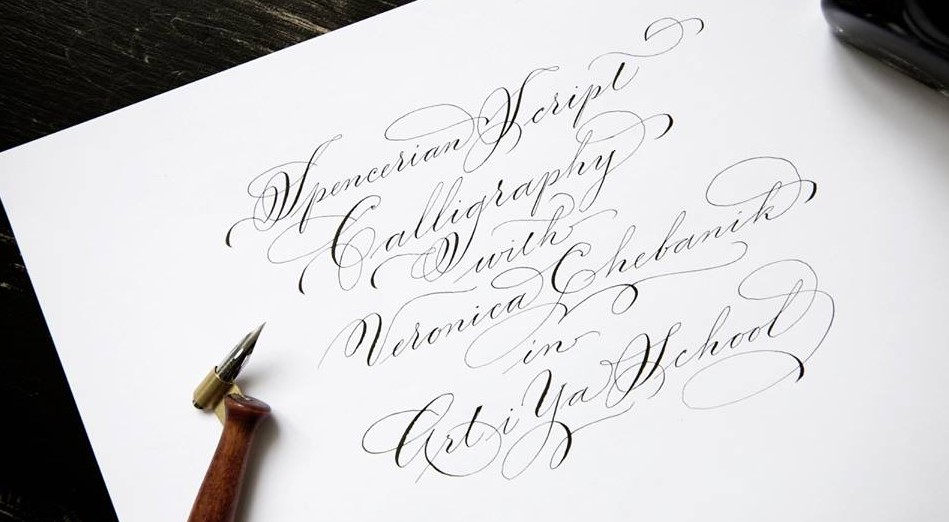 Spencerian Script
Calligraphy
with
Veronica Chebanik
in
Art i Ya School